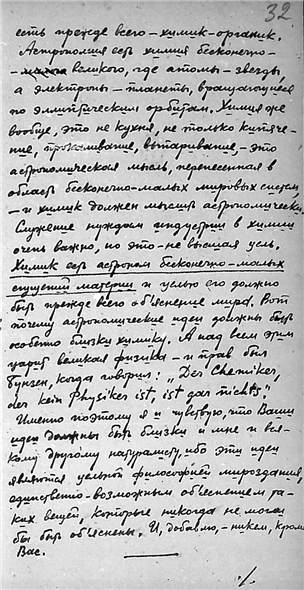 32
есть прежде всего - химик-органик.
Астрономия есть химия бесконечно-
- великого, где атомы - звезды,
а электроны - планеты, вращающиеся
по эллиптическим орбитам. Химия же
вообще, это не кухня, не только кипяче-
ние, прокаливание, выпаривание, - это
астрономическая мысль, перенесенная в
область бесконечно-малых мировых систем,
- и химик должен мыслить астрономически.
Служение нуждам индустрии в химии
очень важно, но это - не высшая цель.
Химик есть астроном бесконечно-малых
сгущений материи и целью его должно
быть прежде всего объяснение мира. Вот
почему астрономические идеи должны быть
особенно близки химику. А над всем этим
царит великая физика - и прав был
Бунзен, когда говорил: „Der Chemiker,
der kein Physiker ist, ist gar nichts."
Именно поэтому я и чувствую, что Ваши
идеи должны быть близки и мне и вся-
кому другому натуралисту, ибо эти идеи
являются цельной философией мироздания,
единственно-возможным объяснением та-
ких вещей, которые никогда не могли
бы быть объяснены. И, добавлю, - никем, кроме
Вас.
./.